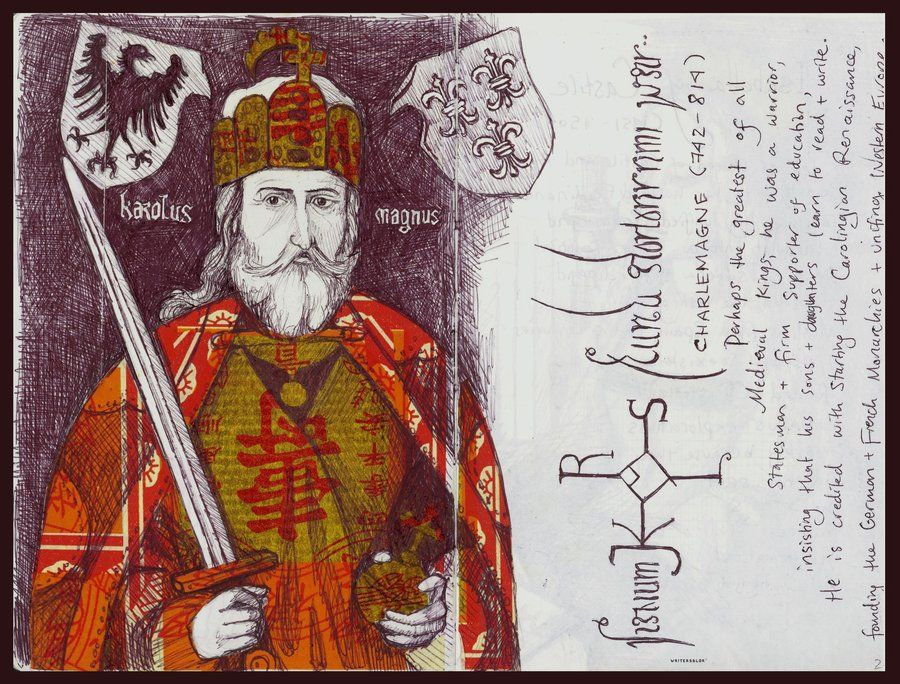 karolus
magnus
K R S L
CHARLEMAGNE (742-814)
Perhaps the greatest of all
Medieval Kings, he was a warrior,
Statesman + firm supporter of education,
insisting that his sons + daughters learn to read + write.
He is credited with starting the Carolingian Renaissance,
founding the German + French Monarchies + unifing Western Europe.
WRITERSBLOK
2